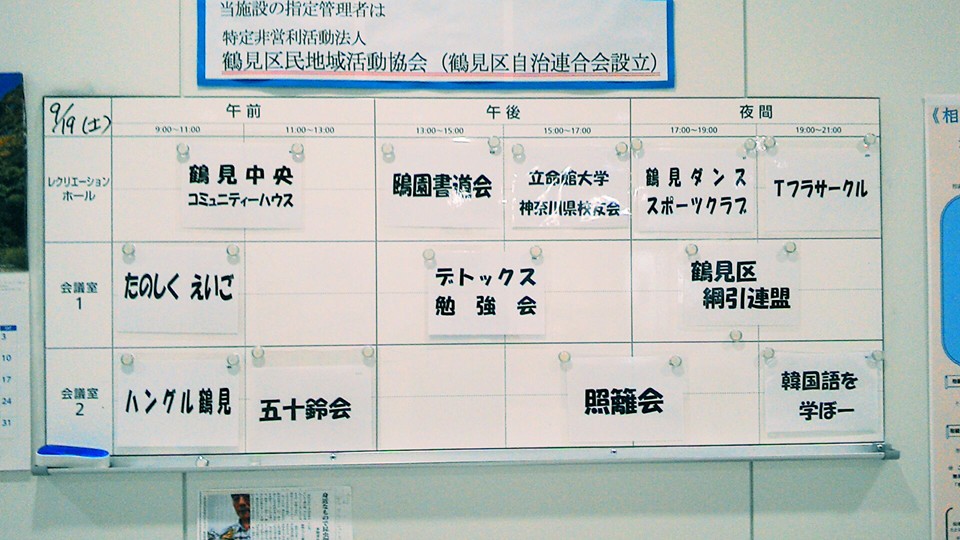 当施設の指定管理者は
特定非営利活動法人
鶴見区民地域活動協会（鶴見区自治連合会設立）
9/19(土)
午前
午後
夜間
9:00～11:00
11:00～13:00
13:00～15:00
15:00～17:00
17:00～19:00
19:00～21:00
レクリエーション
ホール
鶴見中央
コミュニティーハウス
鴎園書道会
立命館大学
神奈川県校友会
鶴見ダンス
スポーツクラブ
Tフラサークル
会議室
1
たのしく えいご
デトックス
勉強会
鶴見区
綱引連盟
会議室
2
ハングル鶴見
五十鈴会
照籠会
韓国語を
学ぼー
《相
3
10
17
24
31